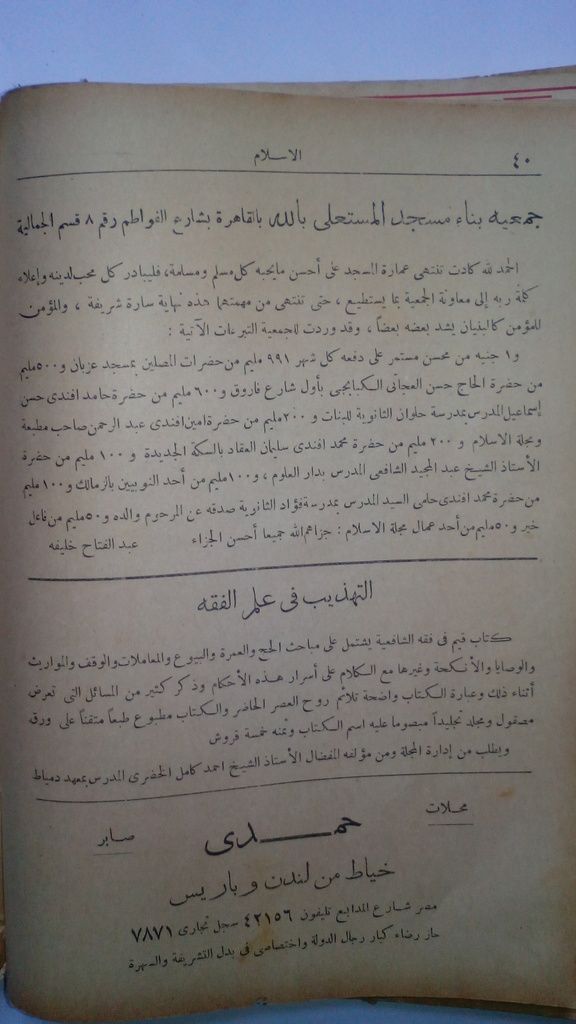 ٤٠
الاسلام
جمعيه بناء مسجد المستعلى بالله بالقاهرة بشارع الفواطم رقم ٨ قسم الجمالية
الحمد لله كادت تنتهى عمارة المسجد على أحسن مايحبه كل مسلم ومسلمة، فليبادر كل محب لدينه وإعلاء
كلمة ربه إلى معاونة الجمعية بما يستطيع ، حتى تنتهى من مهمتها هذه نهاية سارة شريفة ، والمؤمن
للمؤمن كالبنيان يشد بعضه بعضاً ، وقد وردت للجمعية التبرعات الآتية :
و١ جنيه من محسن مستمر على دفعه كل شهر ٩٩١ مليم من حضرات المصلين بمسجد عزبان و٥٠٠مليم
من حضرة الحاج حسن العجانى الكبابجى بأول شارع فاروق و٦٠٠ مليم من حضرة حامد افندى حسن
إسماعيل المدرس بمدرسة حلوان الثانوية للبنات و ٢٠٠مليم من حضرة امين افندى عبد الرحمن صاحب مطبعة
ومجلة الاسلام و ٢٠٠ مليم من حضرة محمد افندى سليمان العقاد بالسكة الجديدة و ١٠٠ مليم من حضرة
الأستاذ الشيخ عبد المجيد الشافعى المدرس بدار العلوم ، و١٠٠مليم من أحد النوبيين بالزمالك و١٠٠ مليم
من حضرة محمد افندى حلمى السيد المدرس بمدرسة فؤاد الثانوية صدقه عن المرحوم والده و٥٠مليم من فاعل
خير و٥٠مليم من أحد عمال مجلة الاسلام : جزاهم الله جميعا أحسن الجزاء عبد الفتاح خليفه
التهذيب فى علم الفقه
كتاب قيم فى فقه الشافعية يشتمل على مباحث الحج والعمرة والبيوع والمعاملات والوقف والمواريث
والوصايا والأنكحة وغيرها مع الكلام على أسرار هذه الأحكام وذكر كثير من المسائل التى تعرض
أثناء ذلك وعبارة الكتاب واضحة تلائم روح العصر الحاضر والكتاب مطبوع طبعاً متقناً على ورق
مصقول ومجلد تجليداً مبصوما عليه اسم الكتاب وثمنه خمسة قروش
ويطلب من إدارة المجلة ومن مؤلفه المفضال الأستاذ الشيخ احمد كامل الخضرى المدرس بمعهد دمياط
محلات
حمدى
صابر
خياط من لندن وباريس
مصر شارع المدابغ تليفون ٤٢١٥٦ سجل تجارى ٧٨٧١
حاز رضاء كبار رجال الدولة واختصاصى فى بدل التشريفة والسهرة